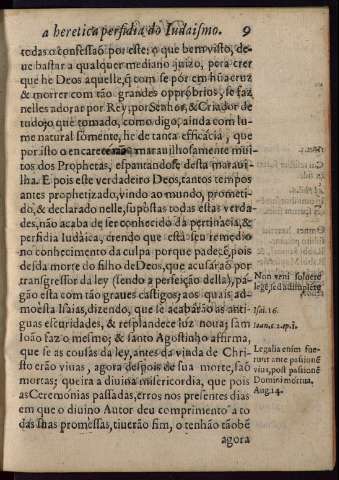 a heretica perfidia do Iudaismo. 9
todas o confessaõ por este: o que bem visto, de-
ue bastar a qualquer mediano juizo, pera crer
que he Deos aquelle, q̃ com se pór em hũa cruz
& morrer com tão grandes oppróbrios, se faz
nelles adorar por Rey, por Senhor, & Criador de
tudo, o que tomado, como digo, ainda com lu-
me natural sómente, he de tanta efficácia, que
por isto o encarecerão marauilhosamente mui-
tos dos Prophetas, espantandose desta maraui-
lha. E pois este verdadeiro Deos, tantos tempos
antes prophetizado, vindo ao mundo, prometi-
do, & declarado nelle, supostas todas estas verda-
des, não acaba de ser conhecido da pertinácia, &
perfidia Iudáica, crendo que está seu remedio
no conhecimento da culpa porque padece, pois
desda morte do filho de Deos, que acusaraõ por
transgressor da ley (sendo a perfeição della), pa-
gão esta com tão graues castigos; aos quais ad-
moesta Isaias, dizendo, que se acabàrão as anti-
guas escuridades, & resplandece luz noua; sam
Ioão faz o mesmo; & santo Agostinho affirma,
que se as cousas da ley, antes da vinda de Chri-
sto erão viuas, agora despois de sua morte, saõ
mortas; queira a diuina misericordia, que pois
as Ceremonias passadas, erros nos presentes dias
em que o diuino Autor deu comprimento a to
das suas promessas, tiuerão fim, o tenhão tãobẽ
agora
Non veni soluere
legẽ, sed adimplere
Isai. 16.
Ioan. c. 2. ap. 1.
Legalia enim fue-
runt ante passionẽ
viua, post passionẽ
Domini mortua.
Aug. 14.